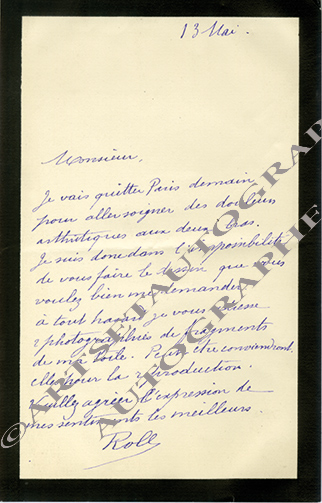 13 Mai.
Monsieur,
Je vais quitter Paris demain
pour aller soigner des douleurs
arthritiques aux deux bras.
Je suis donc dans l'impossibilité
de vous faire le dessin que vous
voulez bien me demander
à tout hasard je vous laisse
2 photographies de fragments
de ma toile. Peut être conviendront
elles pour la reproduction.
Veuillez agréer l'expression de
mes sentiments les meilleurs.
Roll
© ARTSETAUTOGRAPHE
AUTOGRAPHE